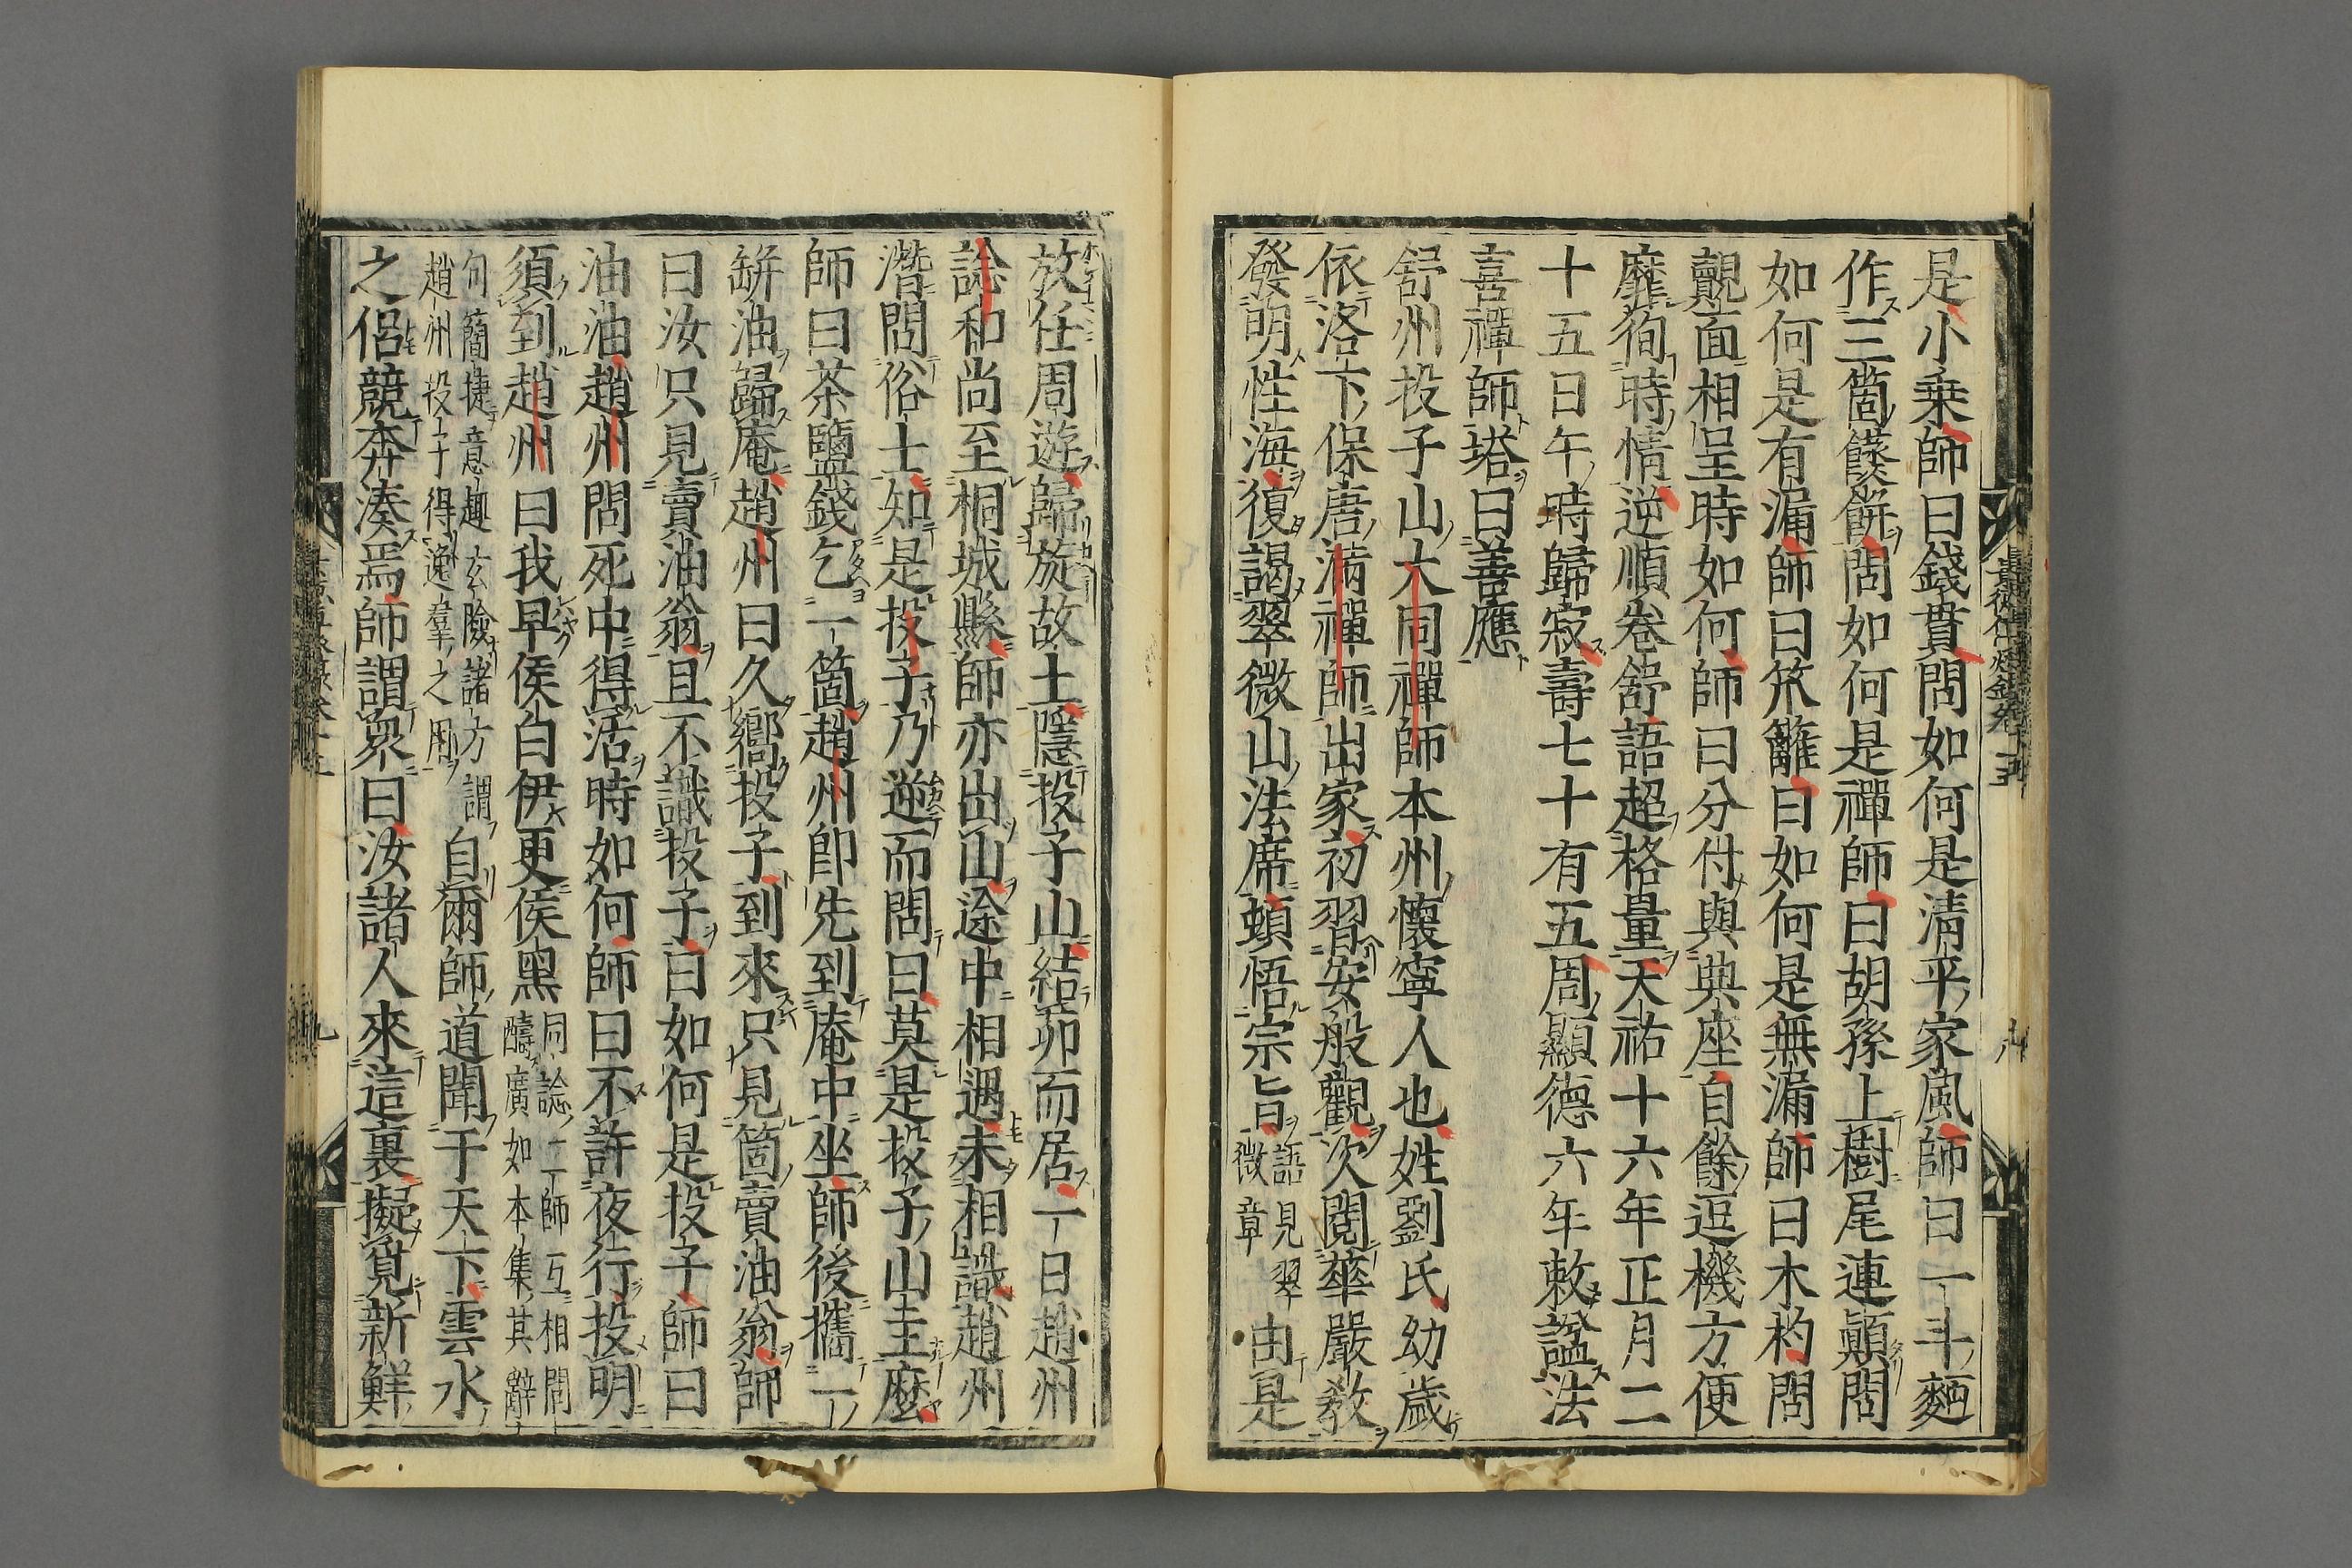 是小乗師曰錢貫問如何是淸平家風師曰一斗麵
作三箇餻餅問如何是禪師曰胡孫上樹尾連顚問
如何是有漏師曰笊籬曰如何是無漏師曰木杓問
覿面相呈時如何師曰分付與典座自餘逗機方便
靡徇時情逆順卷舒語超格量天祐十六年正月二
十五日午時歸寂壽七十有五周顯德六年敕謚法
喜禪師塔曰善應
舒州投子山大同禪師本州懷寧人也姓劉氏幼歲
依洛下保唐滿禪師出家初習安般觀次閱華嚴敎
發明性海復謁翠微山法席頓悟宗旨語見翠微章由是
放任周遊歸旋故土隱投子山結茆而居一日趙州
諗和尚至桐城縣師亦出山途中相遇未相識趙州
潛問俗士知是投子乃逆而問曰莫是投子山主麼
師曰茶鹽錢乞一箇趙州卽先到庵中坐師後攜一
缾油歸庵趙州曰久嚮投子到來只見箇賣油翁師
曰汝只見賣油翁且不識投子曰如何是投子師曰
油油趙州問死中得活時如何師曰不許夜行投明
須到趙州曰我早侯白伊更侯黑同諗二師互相問醻廣如本集其辭
句簡捷意趣玄險諸方謂趙州投子得逸羣之用自爾師道聞于天下雲水
之侶競奔湊焉師謂衆曰汝諸人來這裏擬覓新鮮